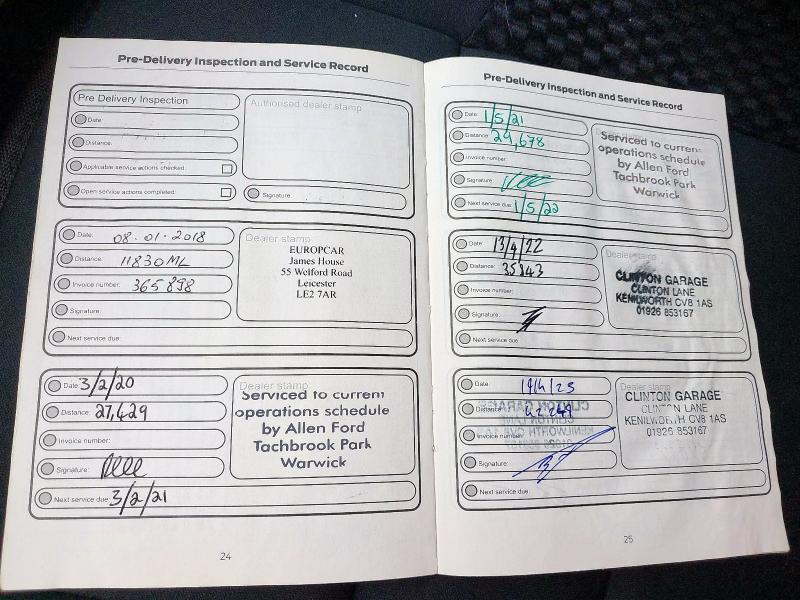 Pre-Delivery Inspection and Service Record
Pre Delivery Inspection
Date:
Distance:
Applicable service actions checked:
Open service actions completed:
Authorised dealer stamp
Signature:
Date: 08.01.2018
Distance: 11830 ML
Invoice number: 365898
Signature:
Next service due:
Dealer stamp
EUROPCAR
James House
55 Welford Road
Leicester
LE2 7AR
Date 3/2/20
Distance: 27,429
Invoice number:
Signature:
Next service due: 3/2/21
Dealer stamp
Serviced to current
operations schedule
by Allen Ford
Tachbrook Park
Warwick
24
Pre-Delivery Inspection and Service Record
Date: 1/5/21
Distance: 29,678
Invoice number:
Signature:
Next service due: 1/5/22
Serviced to current
operations schedule
by Allen Ford
Tachbrook Park
Warwick
Date: 13/4/22
Distance: 35843
Invoice number:
Signature:
Next service due:
Dealer stamp
CLINTON GARAGE
CLINTON LANE
KENILWORTH CV8 1AS
01926 853167
Date:
Distance: 42249
Invoice number:
Signature:
Next service due:
Dealer stamp
CLINTON GARAGE
CLINTON LANE
KENILWORTH CV8 1AS
01926 853167
25